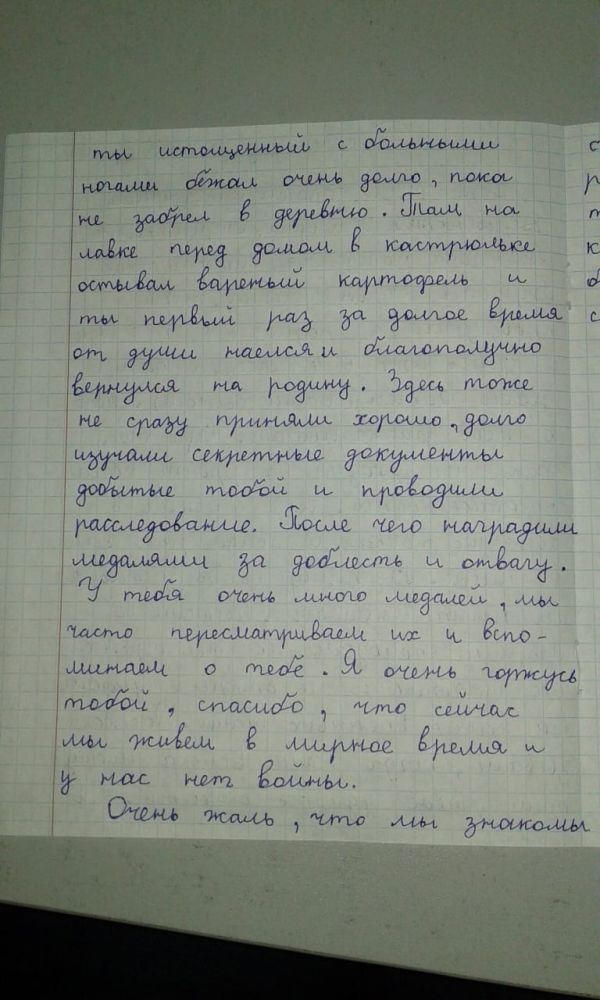 ты истощенный с больными
ногами бежал очень долго, пока
не забрел в деревню. Там, на
лавке перед домом в кастрюльке
остывал вареный картофель и
ты первый раз за долгое время
от души наелся и благополучно
вернулся на родину. Здесь тоже
не сразу приняли хорошо, долго
изучали секретные документы
добытые тобой и проводили
расследование. После чего наградили
медалями за доблесть и отвагу.
У тебя очень много медалей, мы
часто пересматриваем их и вспо-
минаем о тебе. Я очень горжусь
тобой, спасибо, что сейчас
мы живем в мирное время и
у нас нет войны.
Очень жаль, что мы знакомы